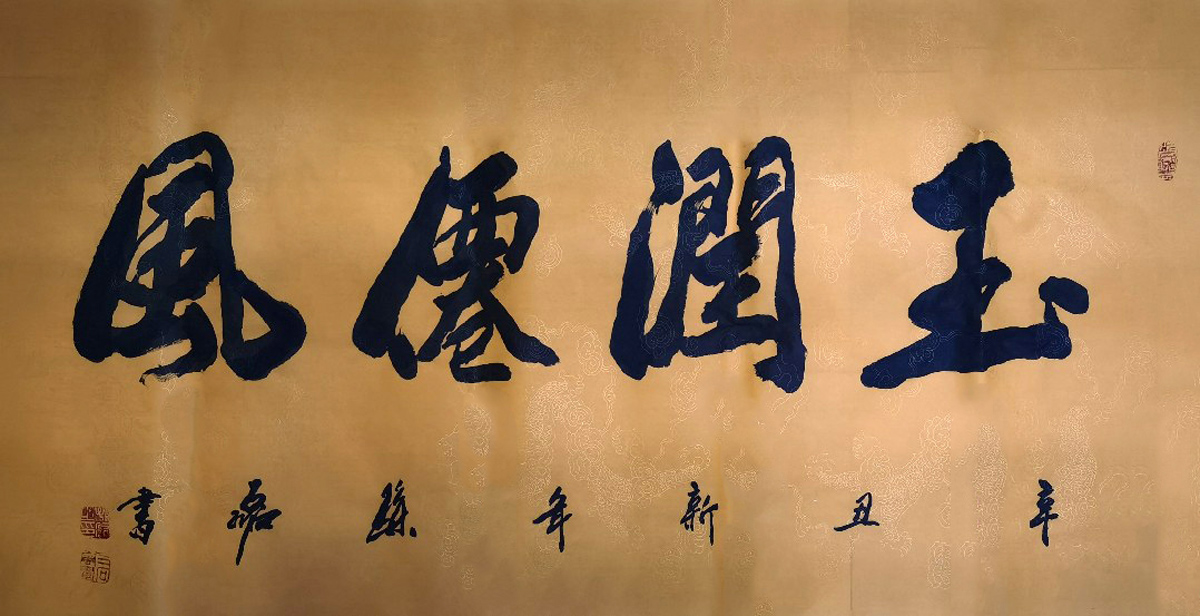 玉潤僊風
辛丑新年孫磊書